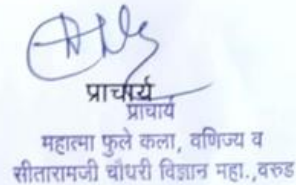 प्राचार्य
प्राचार्य
महात्मा फुले कला, वाणिज्य व
सीतारामजी चौधरी विज्ञान महा.,वरुड